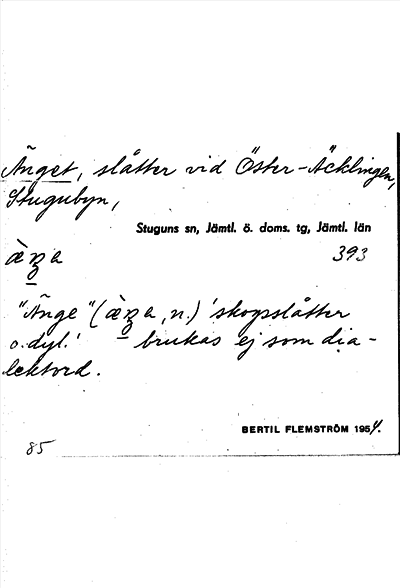 Änget, slåtter vid Öster-Äcklingen,
Stugubyn,
Stuguns sn, Jämtl. ö. doms. tg, Jämtl. län
393
"Änge" (, n.) 'skogsslåtter
o.dyl.' brukas ej som dia-
lektord.
BERTIL FLEMSTRÖM 1954.
85